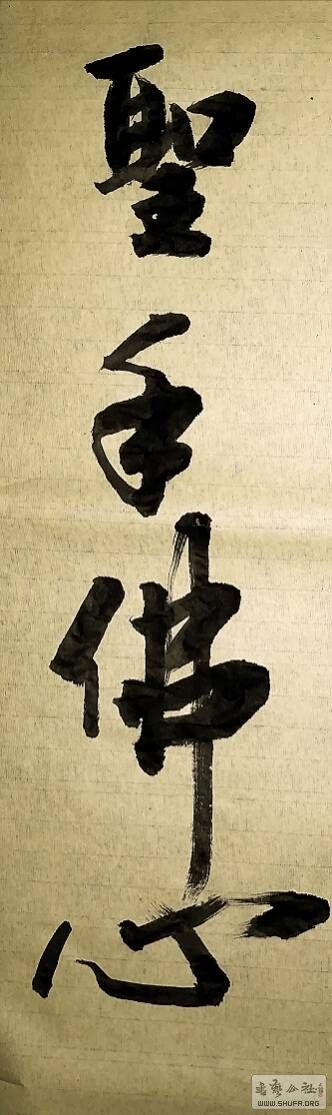 聖手佛心
書藝公社
WWW.SHUFA.ORG